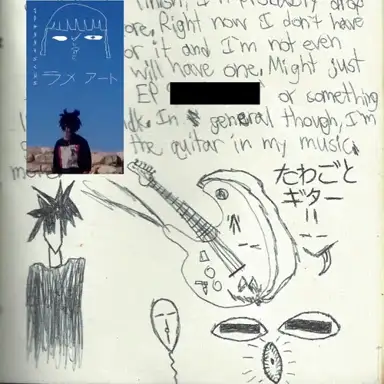 probably drop
ore. Right now I don't have
or it and I'm not even
will have one. Might just
EP or something
In general though, I'm
the guitar in my music
ラメ アート
たわごと
ギター